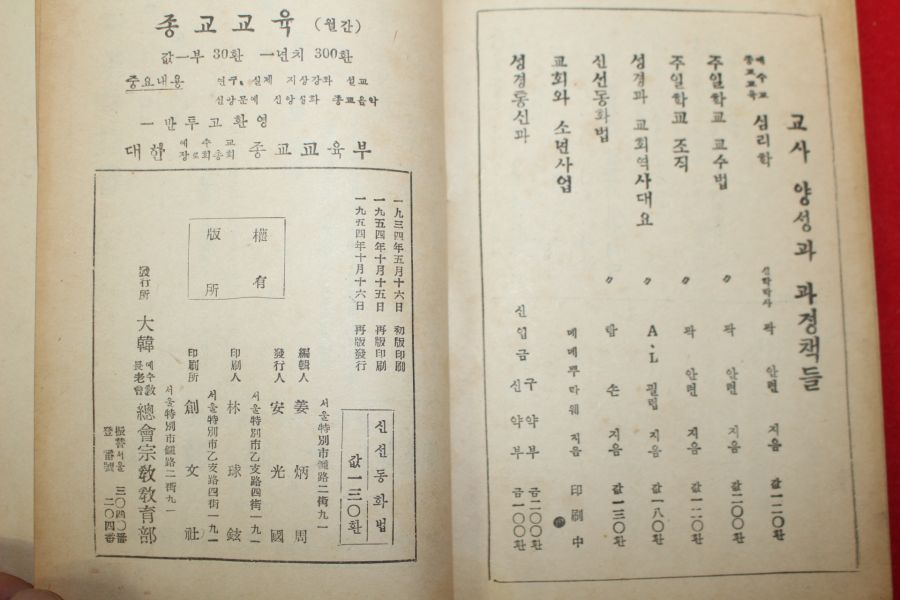 종교교육 (월간)
값一부 30환 一년치 300환
중요내용 연구, 실제 지상강좌 설교
신앙문예 신앙성화 종교음악
一만투고환영
대한 예수교 장로회총회 종교교육부
一九三四年五月十六日 初版印刷
一九五四年十月十五日 再版印刷
一九五四年十月十六日 再版發行
版權所有
신선동화법
값一三〇환
서울特別市鍾路二街九一
編輯人 姜炳周
發行人 安光國
서울特別市乙支路四街一九一
印刷人 林球鉉
서울特別市乙支路四街一九一
印刷所 創文社
서울特別市鍾路二街九一
發行所 大韓예수敎長老會總會宗敎敎育部
振替서울 三〇四〇番
登番號 二〇四番
교사 양성과 과정책들
예수교 종교교육 심리학 신학박사 곽안련 지음 값一二〇환
주일학교 교수법 〃 곽안련 지음 값一二〇환
주일학교 조직 〃 곽안련 지음 값一二〇환
성경과 교회역사대요 〃 A、L 필립 지음 값一八〇환
신선동화법 〃 탐손 지음 값一三〇환
교회와 소년사업 메메루따웨 지음 印刷中
성경통신과 신입금 구약부 금二〇〇환
신약부 금一〇〇환